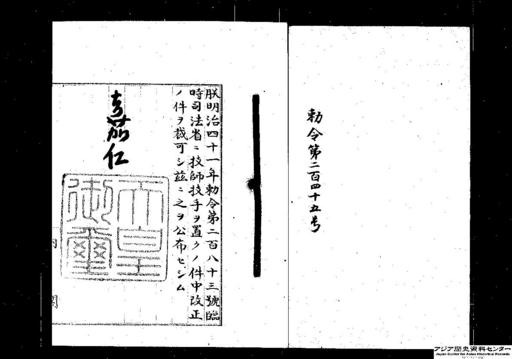 勅令第二百四十五号
朕明治四十一年勅令第二百八十三號臨
時司法省ニ技師技手ヲ置クノ件中改正
ノ件ヲ裁可シ茲ニ之ヲ公布セシム
嘉仁
天皇
御璽
アジア歴史資料センター
Japan Center for Asian Historical Records